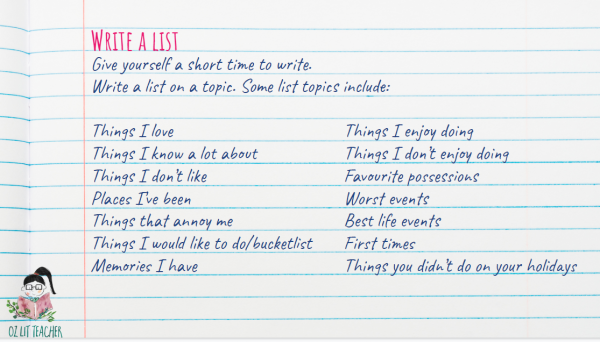 WRITE A LIST
Give yourself a short time to write.
Write a list on a topic. Some list topics include:
Things I love
Things I know a lot about
Things I don't like
Places I've been
Things that annoy me
Things I would like to do/bucketlist
Memories I have
Things I enjoy doing
Things I don't enjoy doing
Favourite possessions
Worst events
Best life events
First times
Things you didn't do on your holidays
OZ LIT TEACHER